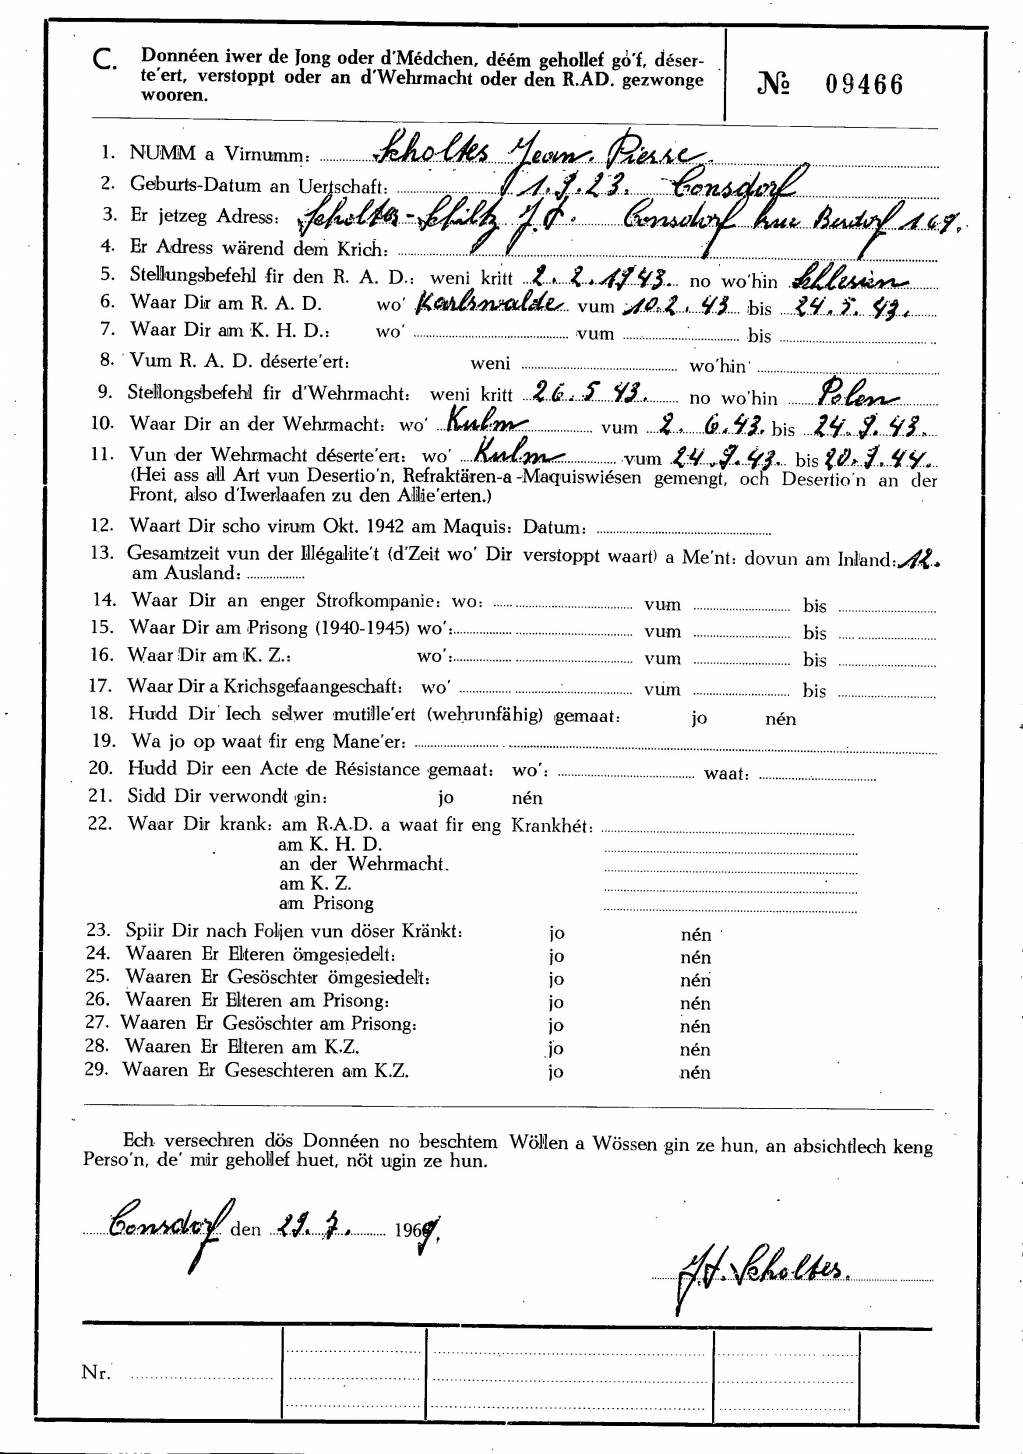 C. Donnéen iwer de Jong oder d'Médchen, déém gehollef gö'f, déser-
te'ert, verstoppt oder an d'Wehrmacht oder den R.AD. gezwonge
wooren.
№ 09466
1. NUMM a Virnumm: Scholtes Jean. Pierre.
2. Geburts-Datum an Uertschaft: 1.9.23. Consdorf
3. Er jetzeg Adress: Scholtes-Schiltz J.P. Consdorf rue Berdorf 169.
4. Er Adress wärend dem Krich:
5. Stellungsbefehl fir den R. A. D.: weni kritt 2.2.1943. no wo'hin Schlesien
6. Waar Dir am R. A. D. wo' Karlswalde vum 10.2.43 bis 24.5.43.
7. Waar Dir am K. H. D.: wo' vum bis
8. Vum R. A. D. déserte'ert: weni wo'hin
9. Stellongsbefehl fir d'Wehrmacht: weni kritt 26.5 43. no wo'hin Polen
10. Waar Dir an der Wehrmacht: wo' Kulm vum 2. 6.43. bis 24.9.43.
11. Vun der Wehrmacht déserte'ert: wo' Kulm vum 24.9.43. bis 20.9.44.
(Hei ass all Art vun Desertio'n, Refraktären-a-Maquiswiésen gemengt, och Desertio'n an der
Front, also d'Iwerlaafen zu den Allie'erten.)
12. Waart Dir scho virum Okt. 1942 am Maquis: Datum:
13. Gesamtzeit vun der Illégalite't (d'Zeit wo' Dir verstoppt waart) a Me'nt: dovun am Inland: 12.
am Ausland:
14. Waar Dir an enger Strofkompanie: wo: vum bis
15. Waar Dir am Prisong (1940-1945) wo': vum bis
16. Waar Dir am K. Z.: wo': vum bis
17. Waar Dir a Krichsgefaangeschaft: wo' vum bis
18. Hudd Dir Iech selwer mutille'ert (wehrunfähig) gemaat: jo nén
19. Wa jo op waat fir eng Mane'er:
20. Hudd Dir een Acte de Résistance gemaat: wo': waat:
21. Sidd Dir verwondt gin: jo nén
22. Waar Dir krank: am R.A.D. a waat fir eng Krankhét:
am K. H. D.
an der Wehrmacht.
am K. Z.
am Prisong
23. Spiir Dir nach Foljen vun döser Kränkt: jo nén
24. Waaren Er Elteren ömgesiedelt: jo nén
25. Waaren Er Gesöschter ömgesiedelt: jo nén
26. Waaren Er Elteren am Prisong: jo nén
27. Waaren Er Gesöschter am Prisong: jo nén
28. Waaren Er Elteren am K.Z. jo nén
29. Waaren Er Geseschteren am K.Z. jo nén
Ech versechren dös Donnéen no beschtem Wöllen a Wössen gin ze hun, an absichtlech keng
Perso'n, de' mir gehollef huet, nöt ugin ze hun.
Consdorf den 29.7. 1969.
J.P. Scholtes.
Nr.